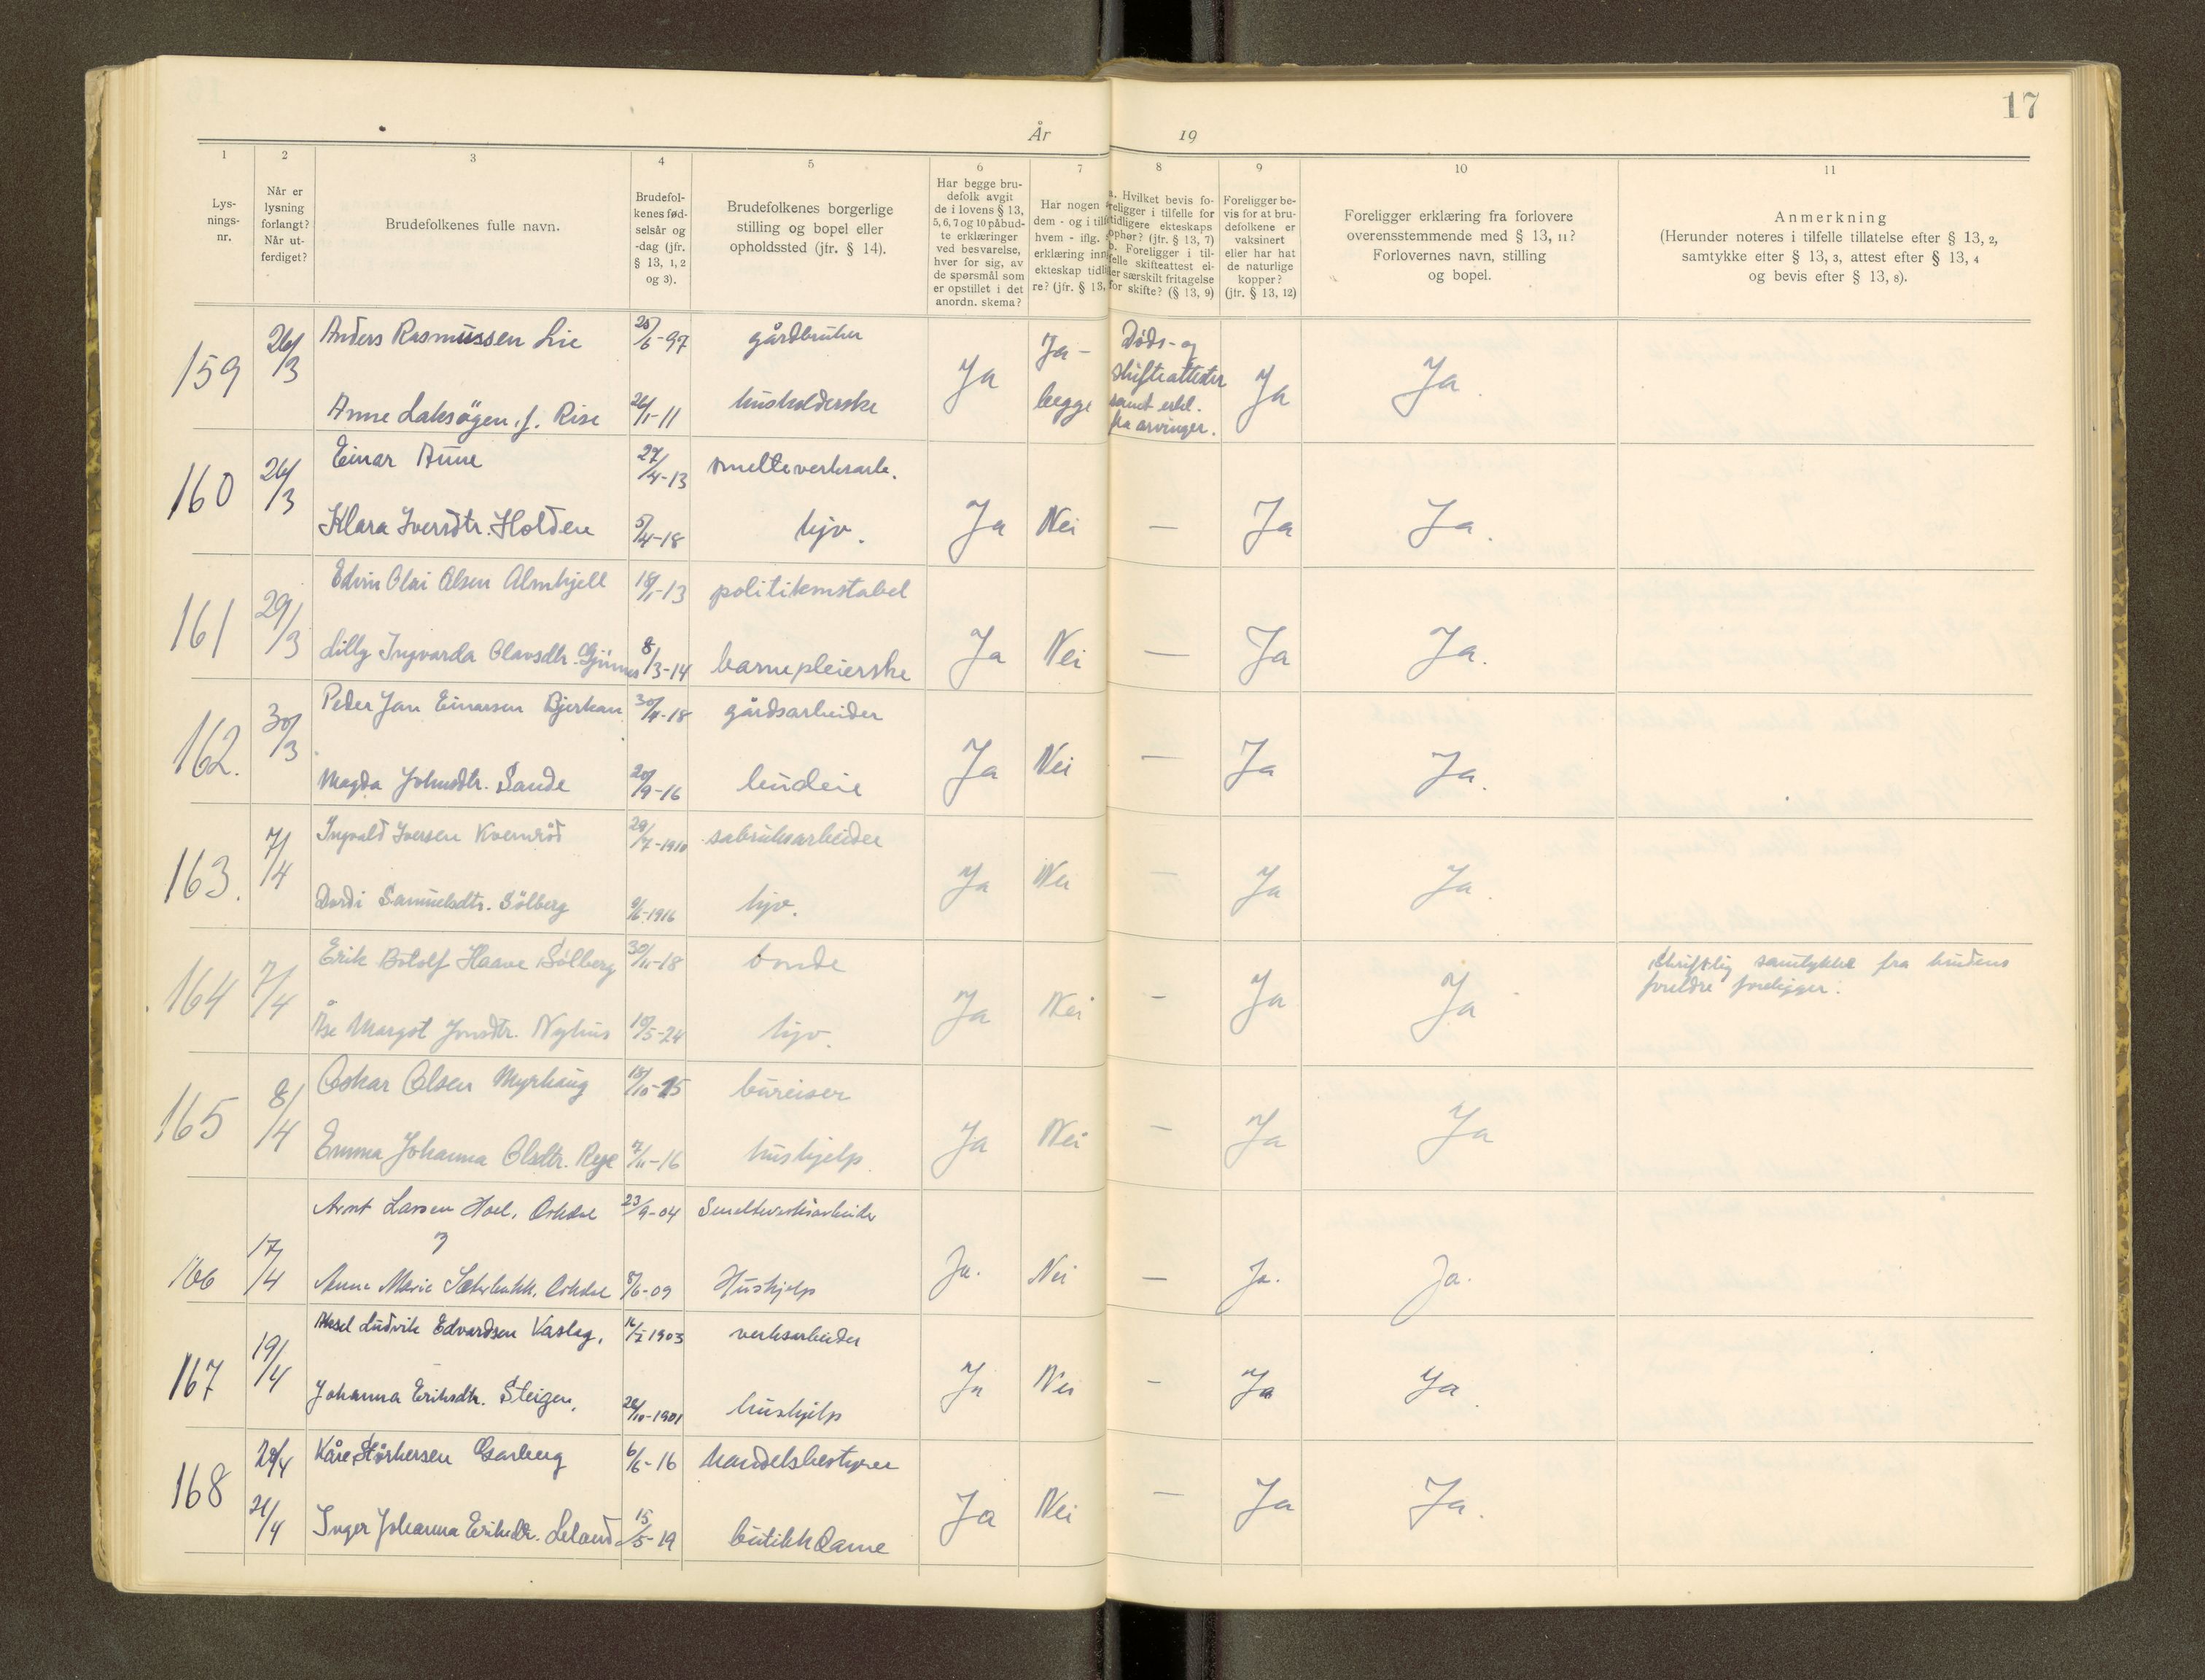 17
År 19
1 2 3 4 5 6 7 8 9 10 11
Lys-
nings-
nr.
Når er
lysning
forlangt?
Når ut-
ferdiget?
Brudefolkenes fulle navn.
Brudefol-
kenes fød-
selsår og
-dag (jfr.
§ 13, 1, 2
og 3).
Brudefolkenes borgerlige
stilling og bopel eller
opholdssted (jfr. § 14).
Har begge bru-
defolk avgit
de i lovens § 13,
5, 6, 7 og 10 påbud-
te erklæringer
ved besvarelse,
hver for sig, av
de spørsmål som
er opstillet i det
anordn. skema?
Har nogen
dem - og i tilf
hvem - iflg.
erklæring inn
ekteskap tidli
re? (jfr. § 13,
a. Hvilket bevis fo-
religger i tilfelle for
tidligere ekteskaps
ophør? (jfr. § 13, 7)
b. Foreligger i til-
felle skifteattest el-
ler særskilt fritagelse
for skifte? (§ 13, 9)
Foreligger be-
vis for at bru-
defolkene er
vaksinert
eller har hat
de naturlige
kopper?
(jfr. § 13, 12)
Foreligger erklæring fra forlovere
overensstemmende med § 13, 11?
Forlovernes navn, stilling
og bopel.
Anmerkning
(Herunder noteres i tilfelle tillatelse efter § 13, 2,
samtykke efter § 13, 3, attest efter § 13, 4
og bevis efter § 13, 8).
159 26/3 Anders Rasmussen Lie 25/6-97 gårdbruker
Anne Laksøgen, f. Rise 26/1-11 husholderske
Ja Ja - begge
Døds- og
skifteattester
samt erkl.
fra arvinger.
Ja Ja.
160 26/3 Einar Aune 27/4-13 smelteverksarb.
Klara Iversdtr. Holden 5/4-18 hjv. Ja Nei — Ja Ja.
161 29/3 Edvin Olai Olsen Almhjell 18/1-13 politikonstabel
Lilly Ingvarda Olavsdtr. Gjønnes 8/3-14 barnepleierske Ja Nei — Ja Ja.
162. 30/3 Peder Jan Einarsen Bjerkan 30/4-18 gårdsarbeider
Magda Johnsdtr. Sande 20/9-16 budeie Ja Nei — Ja Ja.
163. 7/4 Ingvald Iversen Kvernrød 29/7-1910 sabruksarbeider
Dordi Samuelsdtr. Sølberg 9/6-1916 hjv. Ja Nei — Ja Ja.
164 7/4 Erik Botolf Haave Sølberg 30/11-18 bonde
Åse Margot Jonsdtr. Nyhus 10/5-24 hjv. Ja Nei - Ja Ja
Skriftlig samtykke fra brudens
foreldre foreligger.
165 8/4 Oskar Olsen Myrhaug 18/10-15 bureiser
Emma Johanna Olsdtr. Rye 7/11-16 hushjelp Ja Nei — Ja Ja
166 17/4 Arnt Larsen Hoel, Orkdal 23/9-04 Smelteverksarbeider
og
Anna Marie Sæterbakk, Orkdal 5/6-09 Hushjelp Ja. Nei — Ja. Ja.
167 19/4 Aksel Ludvik Edvardsen Vaslag, 16/2 1903 verksarbeider
Johanna Eriksdtr. Steigen, 28/10-1901 hushjelp Ja Nei - Ja Ja.
168 20/4 Kåre Størkersen Garberg 6/6-16 handelsbestyrer
21/4 Inger Johanna Eriksdtr. Leland 15/5-19 butikkdame Ja Nei — Ja Ja.